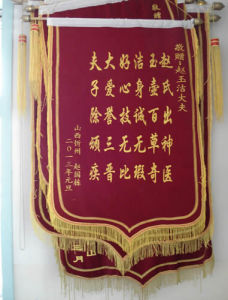 敬赠:赵玉洁大夫
赵氏出神医
玉壶百草奇
洁身诚无瑕
好心技无比
大爱誉三晋
夫子除顽疾
山西忻州 赵国栋
二〇一三年元旦